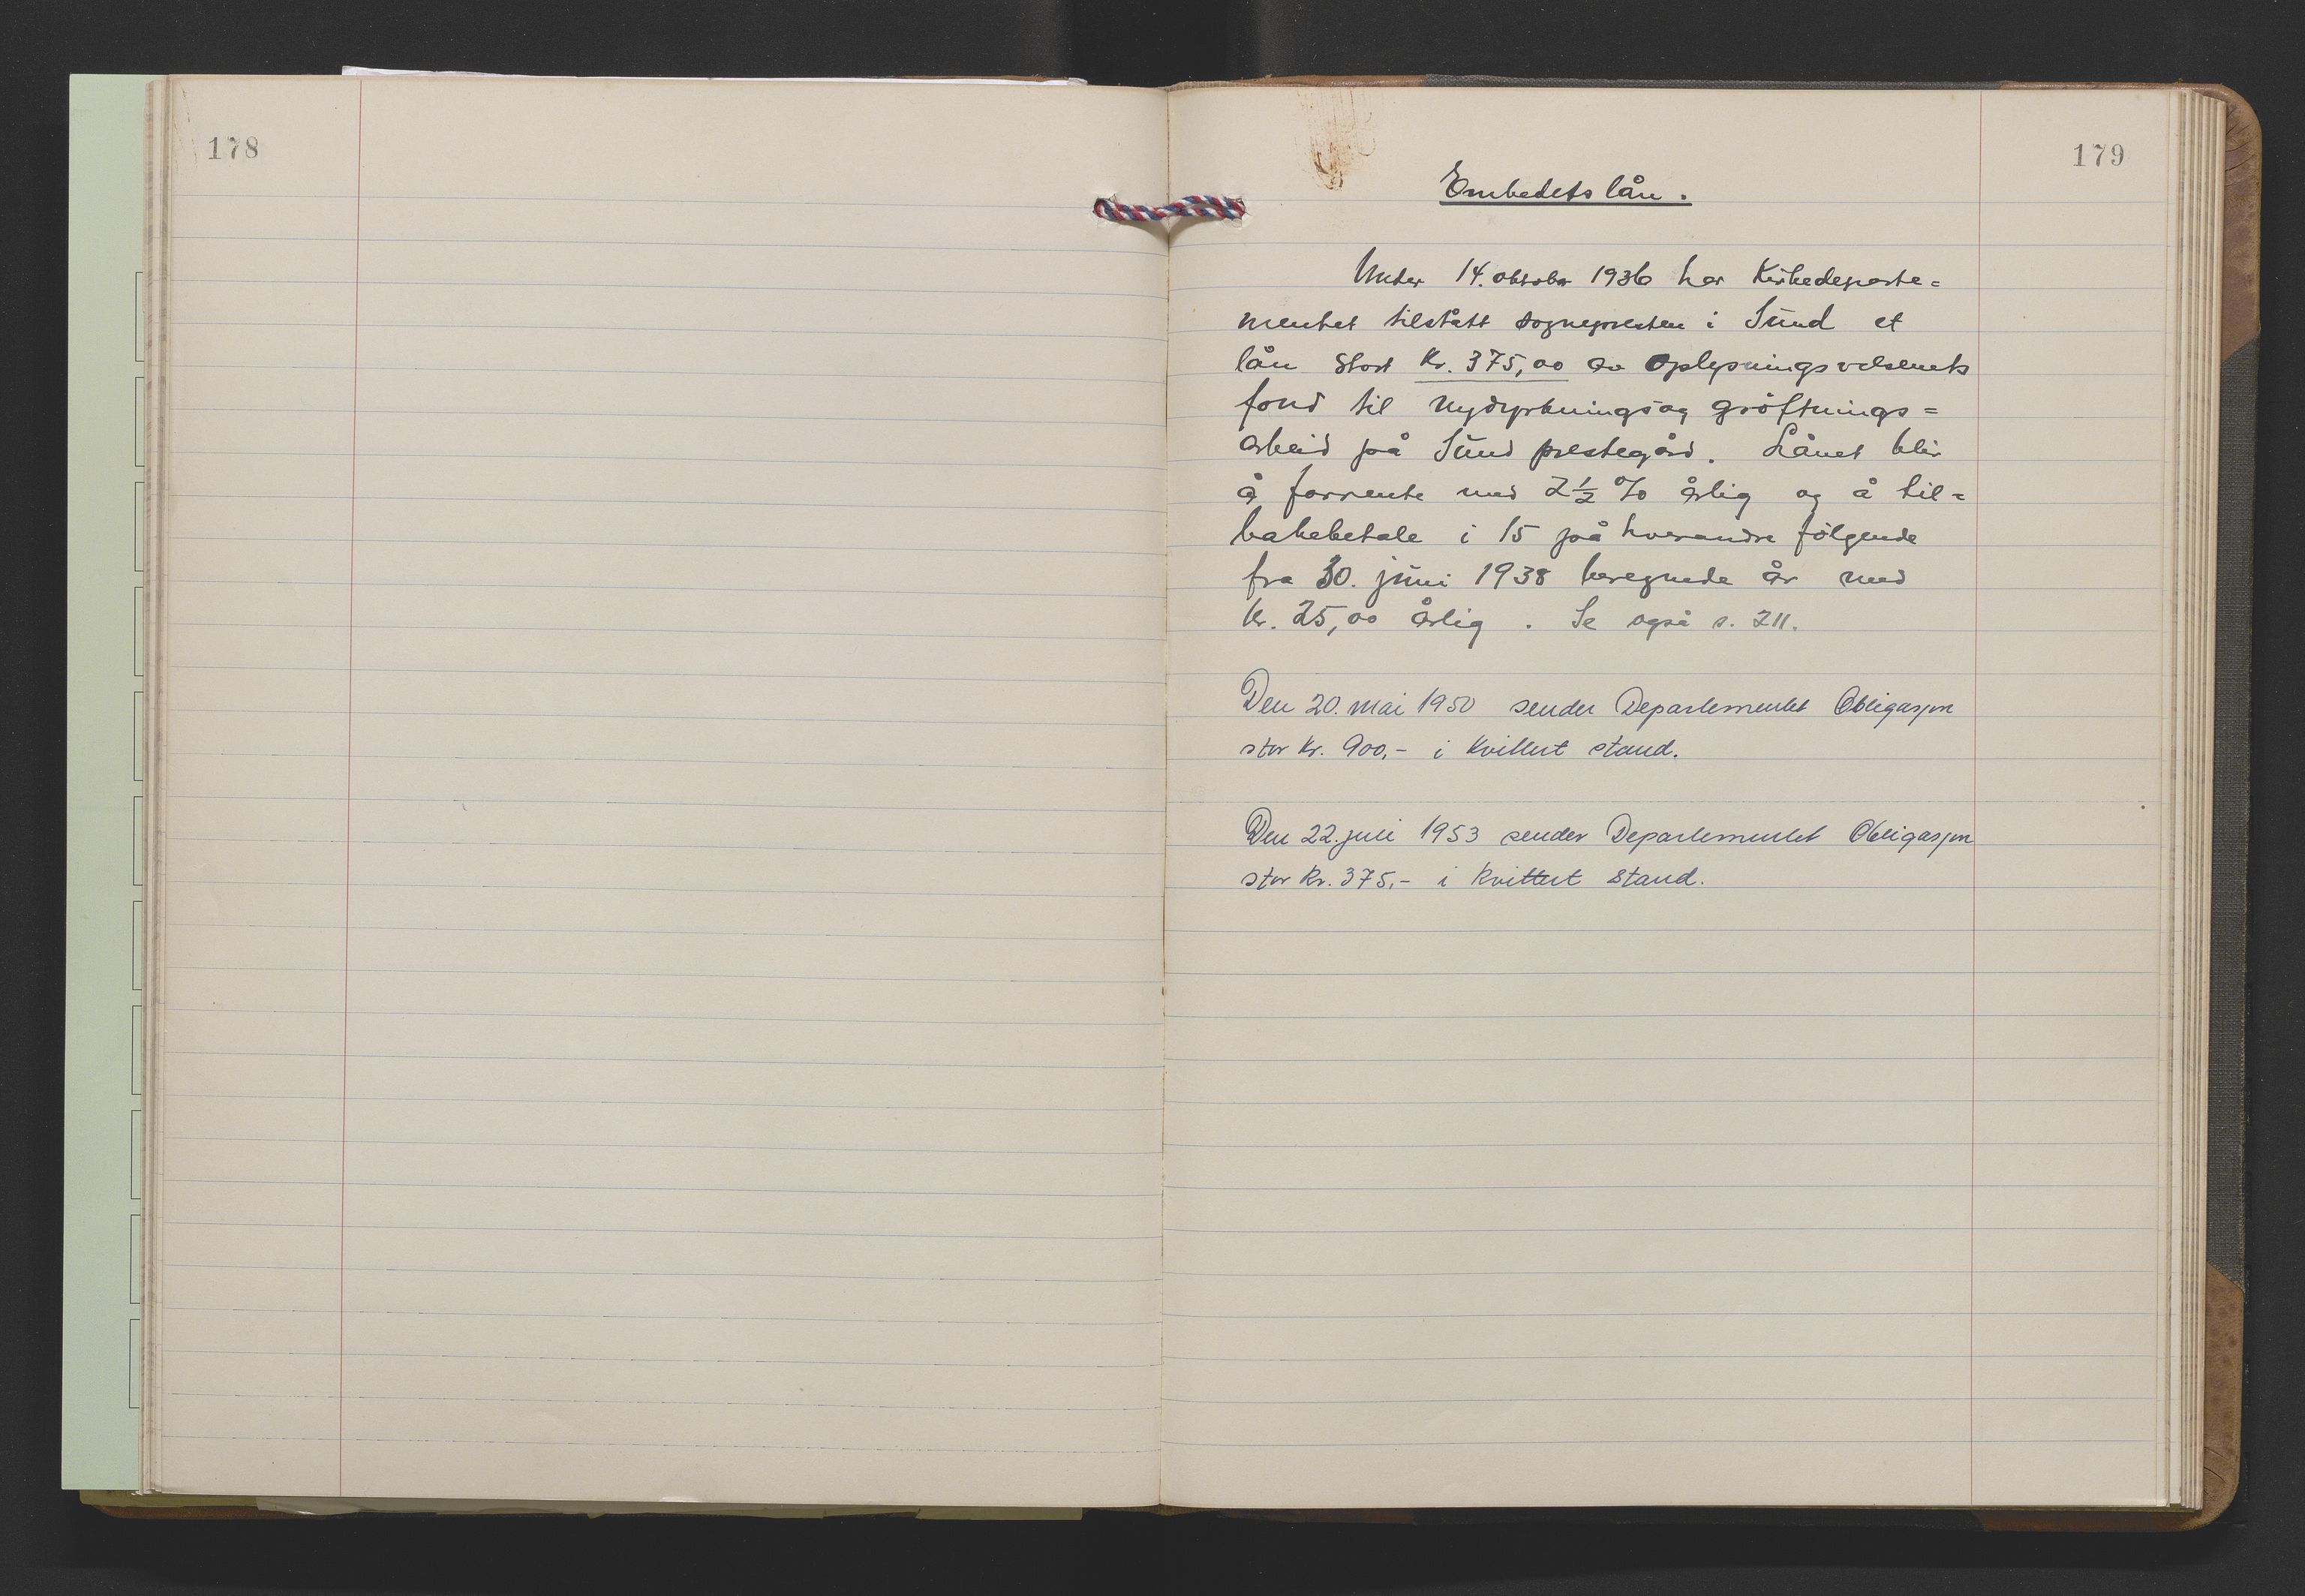 178
179
Embedetslån.
Under 14. oktober 1936 har Kirkedeparte=
mentet tilstått sognepresten i Sund et
lån stort kr. 375,00 av Oplysningsvesenets
fond til nydyrkningsog gröftnings=
arbeid på Sund prestegård. Lånet blir
å forrente med 2½ % årlig og å til=
bakebetale i 15 på hverandre fölgende
fra 30. juni 1938 beregnede år med
kr. 25,00 årlig. Se også s. 211.
Den 20. mai 1950 sender Departementet Obligasjon
stor kr. 900,- i kvittert stand.
Den 22. juli 1953 sender Departementet Obligasjon
stor kr. 375,- i kvittert stand.